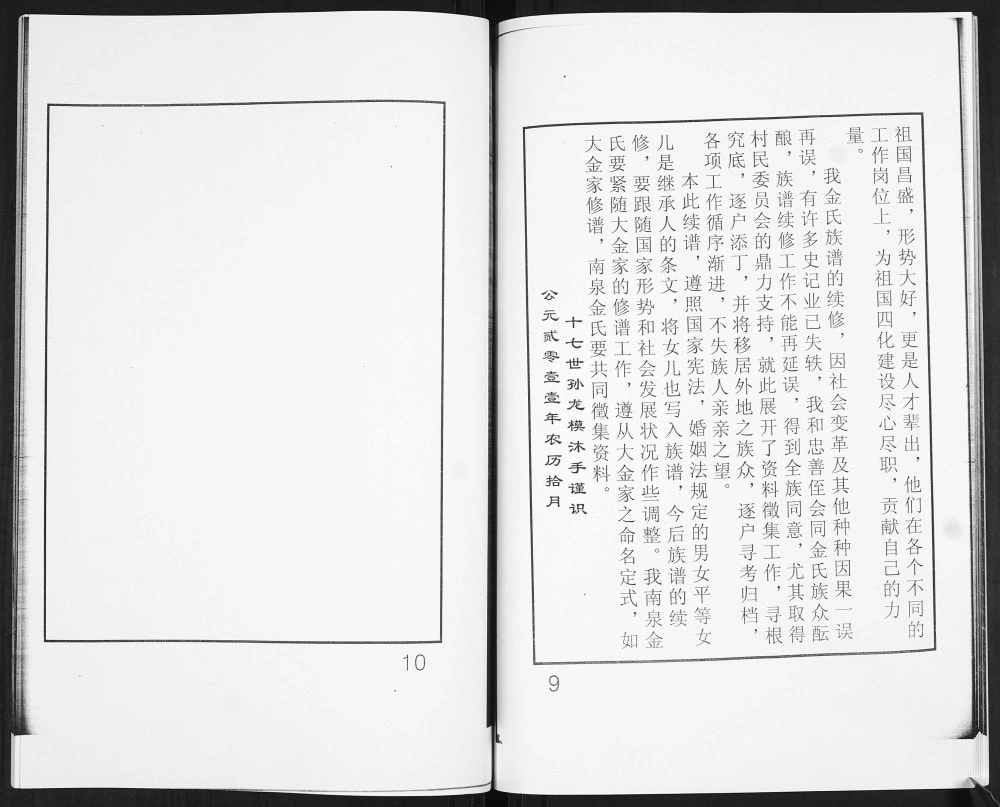 祖国昌盛，形势大好，更是人才辈出，他们在各个不同的
工作岗位上，为祖国四化建设尽心尽职，贡献自己的力
量。
我金氏族谱的续修，因社会变革及其他种种因果一误
再误，有许多史记业已失轶，我和忠善侄会同金氏族众酝
酿，族谱续修工作不能再延误，得到全族同意，尤其取得
村民委员会的鼎力支持，就此展开了资料徵集工作，寻根
究底，逐户添丁，并将移居外地之族众，逐户寻考归档，
各项工作循序渐进，不失族人亲亲之望。
本此续谱，遵照国家宪法，婚姻法规定的男女平等女
儿是继承人的条文，将女儿也写入族谱，今后族谱的续
修，要跟随国家形势和社会发展状况作些调整。我南泉金
氏要紧随大金家的修谱工作，遵从大金家之命名定式，如
大金家修谱，南泉金氏要共同徵集资料。
十七世孙龙模沐手谨识
公元贰零壹壹年农历拾月
9
10